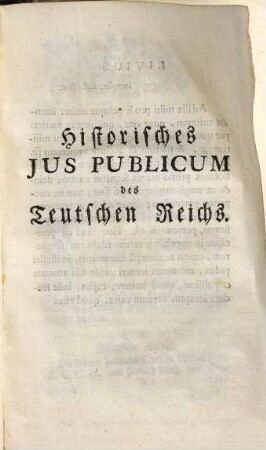 Historisches
JUS PUBLICUM
des
Teutschen Reichs.